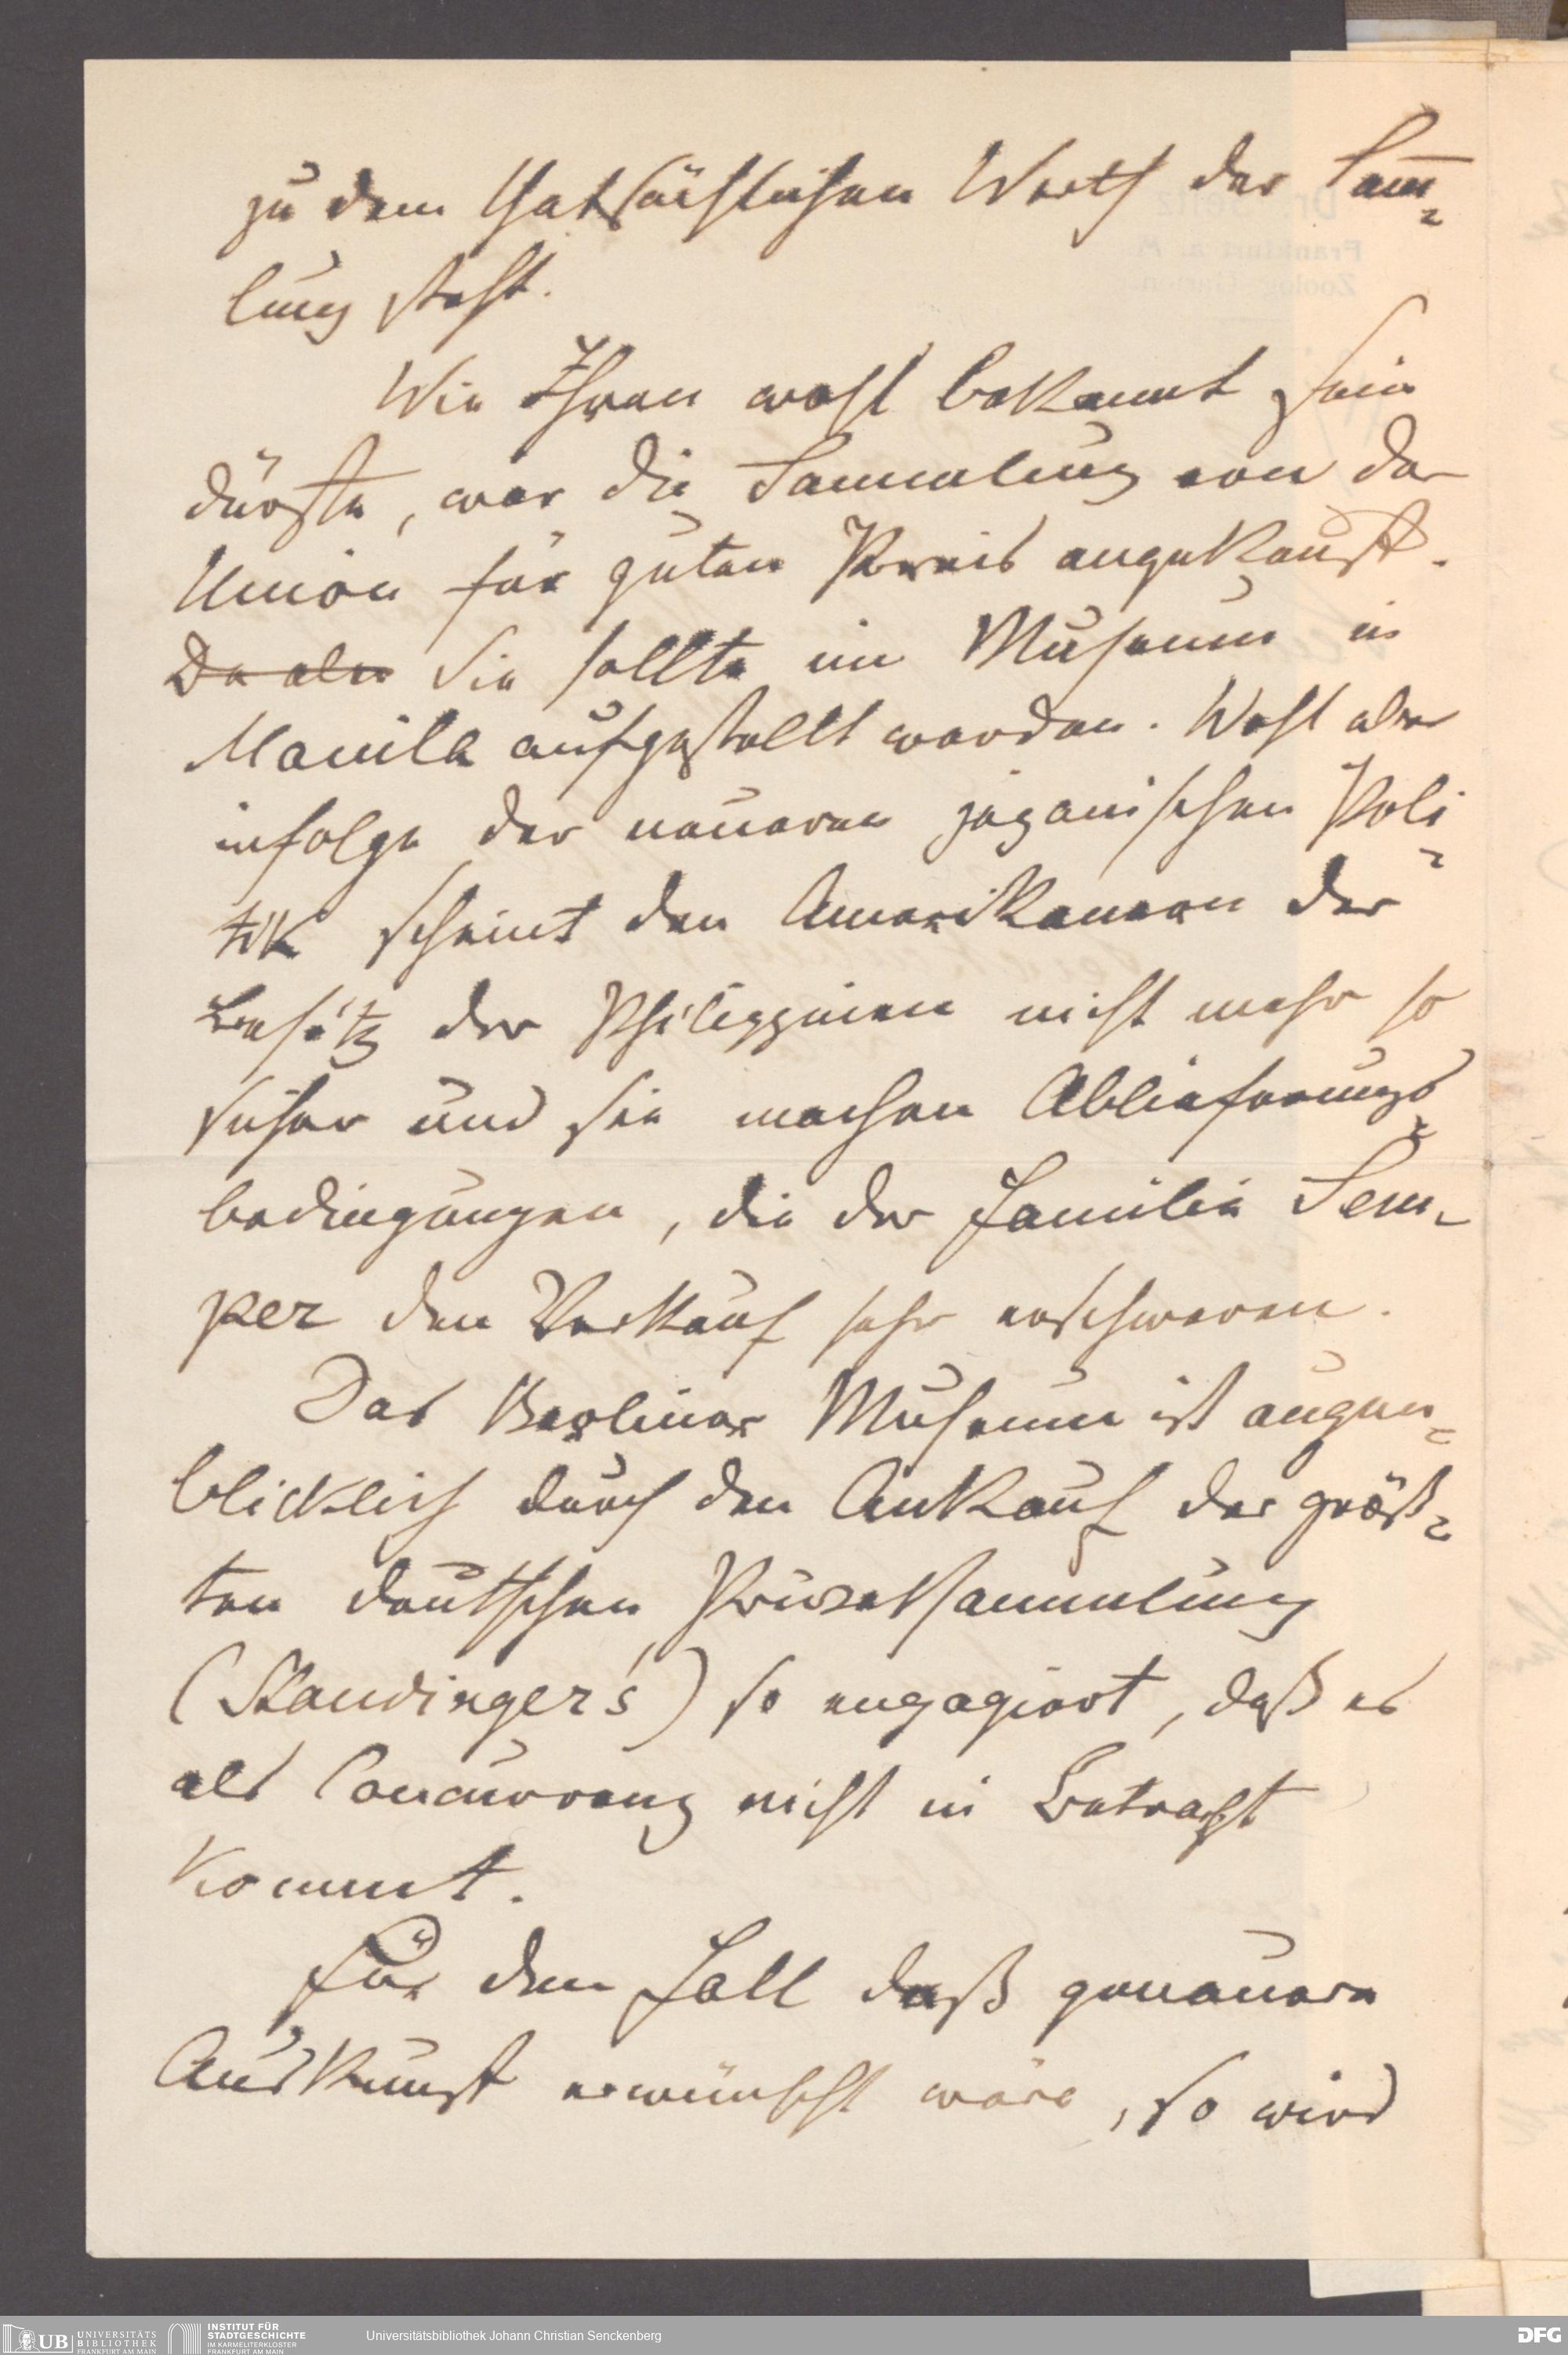 zu dem thatsächlichen Werth der Sam̅=
lung steht.
Wie Ihnen wohl bekannt sein
dürfte, war die Sammlung von der
Union für guten Preis angekauft.
Da aber Sie sollte im Museum in
Manila aufgestellt werden. Wohl aber
infolge der neueren japanischen Poli=
tik scheint den Amerikanern der
Besitz der Philippinen nicht mehr so
sicher und sie machen Ablieferungs=
bedingungen, die der Familie Sem=
per den Verkauf sehr erschweren.
Das Berliner Museum ist augen=
blicklich durch den Ankauf der größ=
ten deutschen Privatsammlung
(Staudinger's) so engagiert, daß es
als Concurrenz nicht in Betracht
kommt.
Für den Fall daß genauere
Auskunft erwünscht wäre, so wird
UB UNIVERSITÄTS
BIBLIOTHEK
FRANKFURT AM MAIN
INSTITUT FÜR
STADTGESCHICHTE
IM KARMELITERKLOSTER
FRANKFURT AM MAIN
Universitätsbibliothek Johann Christian Senckenberg
DFG